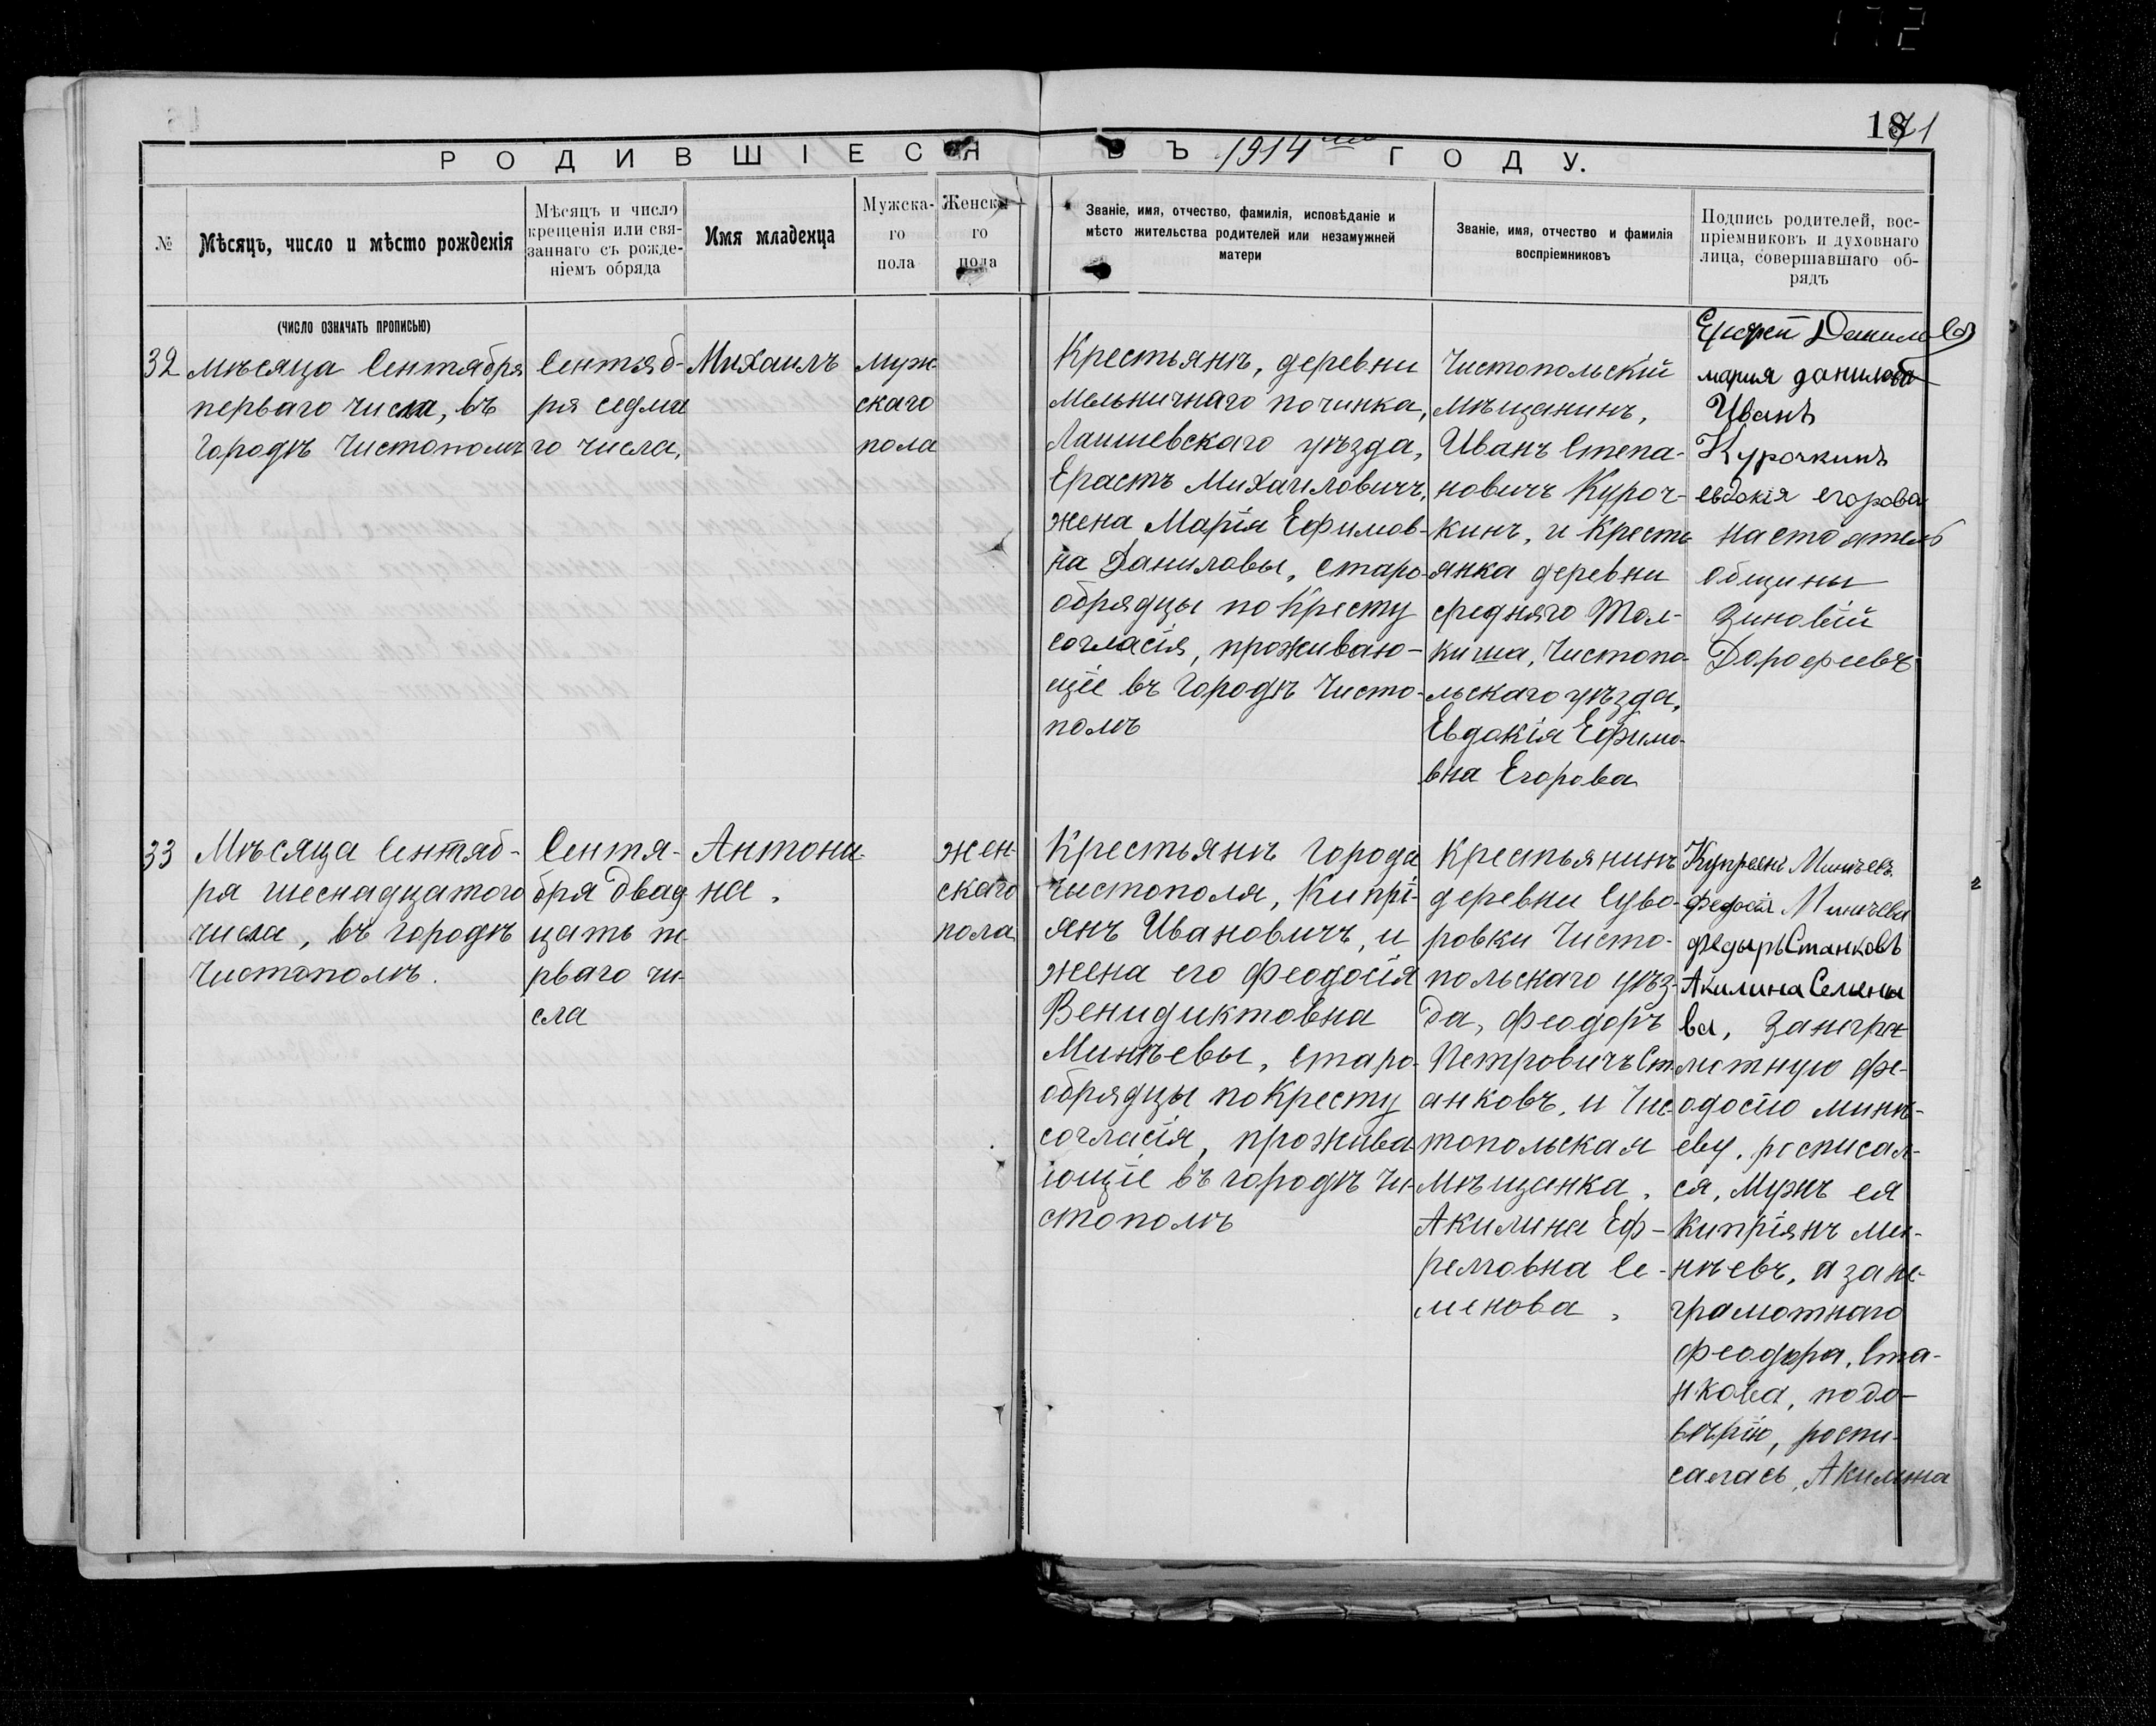 172
1871
РОДИВШІЕСЯ ВЪ 1914 ГОДУ.
№
Мѣсяцъ, число и мѣсто рожденія
Мѣсяцъ и число
крещенія или свя-
заннаго съ рожде-
ніемъ обряда
Имя младенца
Мужска-
го
пола
Женска-
го
пола
Званіе, имя, отчество, фамилія, исповѣданіе и
мѣсто жительства родителей или незамужней
матери
Званіе, имя, отчество и фамилія
воспріемниковъ
Подпись родителей, вос-
пріемниковъ и духовнаго
лица, совершавшаго об-
рядъ
(число означать прописью)
32
мѣсяца Сентября
перваго числа, въ
Городѣ Чистополѣ
Сентяб-
ря седма
го числа,
Михаилъ
муж-
скаго
пола
Крестьянѣ, деревни
Мельничнаго починка,
Лаишевскаго уѣзда,
Ерастъ Михаиловичъ,
жена Марія Ефимов-
на Даниловы, старо-
обрядцы по Кресту
согласія, проживаю-
щіе въ Городѣ Чисто-
полѣ
Чистопольскій
мѣщанинъ,
Иванъ Степа-
новичъ Куроч-
кинъ, и Кресть
янка деревни
средняго Тол-
киша, Чистопо-
льскаго уѣзда,
Евдокія Ефимо-
вна Егорова
Данилов
мария данилова
Иванъ
Курочкинъ
евдокія егорова
настоятель
общины
Зиновій
Дорофеевъ
33
Мѣсяца Сентяб-
ря шеснадцатого
числа, въ городѣ
Чистополѣ.
Сентя-
бря двад
цать пе-
рваго чи-
сла
Антони-
на.
жен-
скаго
пола
Крестьянѣ города
Чистополя, Кипрі-
янъ Ивановичъ, и
жена его Феодосія
Венидиктовна
Минѣевы, старо-
обрядцы по Кресту
согласія, прожива-
ющіе въ городѣ Чи-
стополѣ
Крестьянинъ
деревни Суво-
ровки Чисто-
польскаго уѣз-
да, Феодоръ
Петровичъ Ст
анковъ, и Чис-
топольская
мѣщанка,
Акилина Еф-
ремовна Се-
менова.
Купреянъ Минѣевъ.
Федосія Минѣева
Федыръ Станковъ
Акилина Семено
ва, За негра
мотную Фе-
одосію Минѣ-
еву, росписал-
ся, Мужъ ея
Кипріянъ Ми-
нѣевъ, а за не-
грамотнаго
Феодора, Ста-
нкова, по до-
вѣрію, роспи-
салась, Акилина